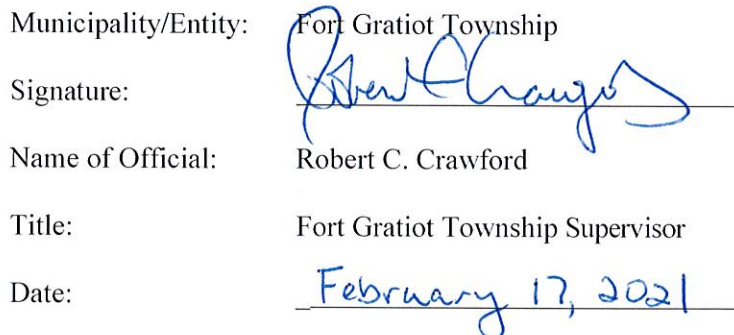 Municipality/Entity: Fort Gratiot Township
Signature: Robert C Crawford
Name of Official: Robert C. Crawford
Title: Fort Gratiot Township Supervisor
Date: February 17, 2021